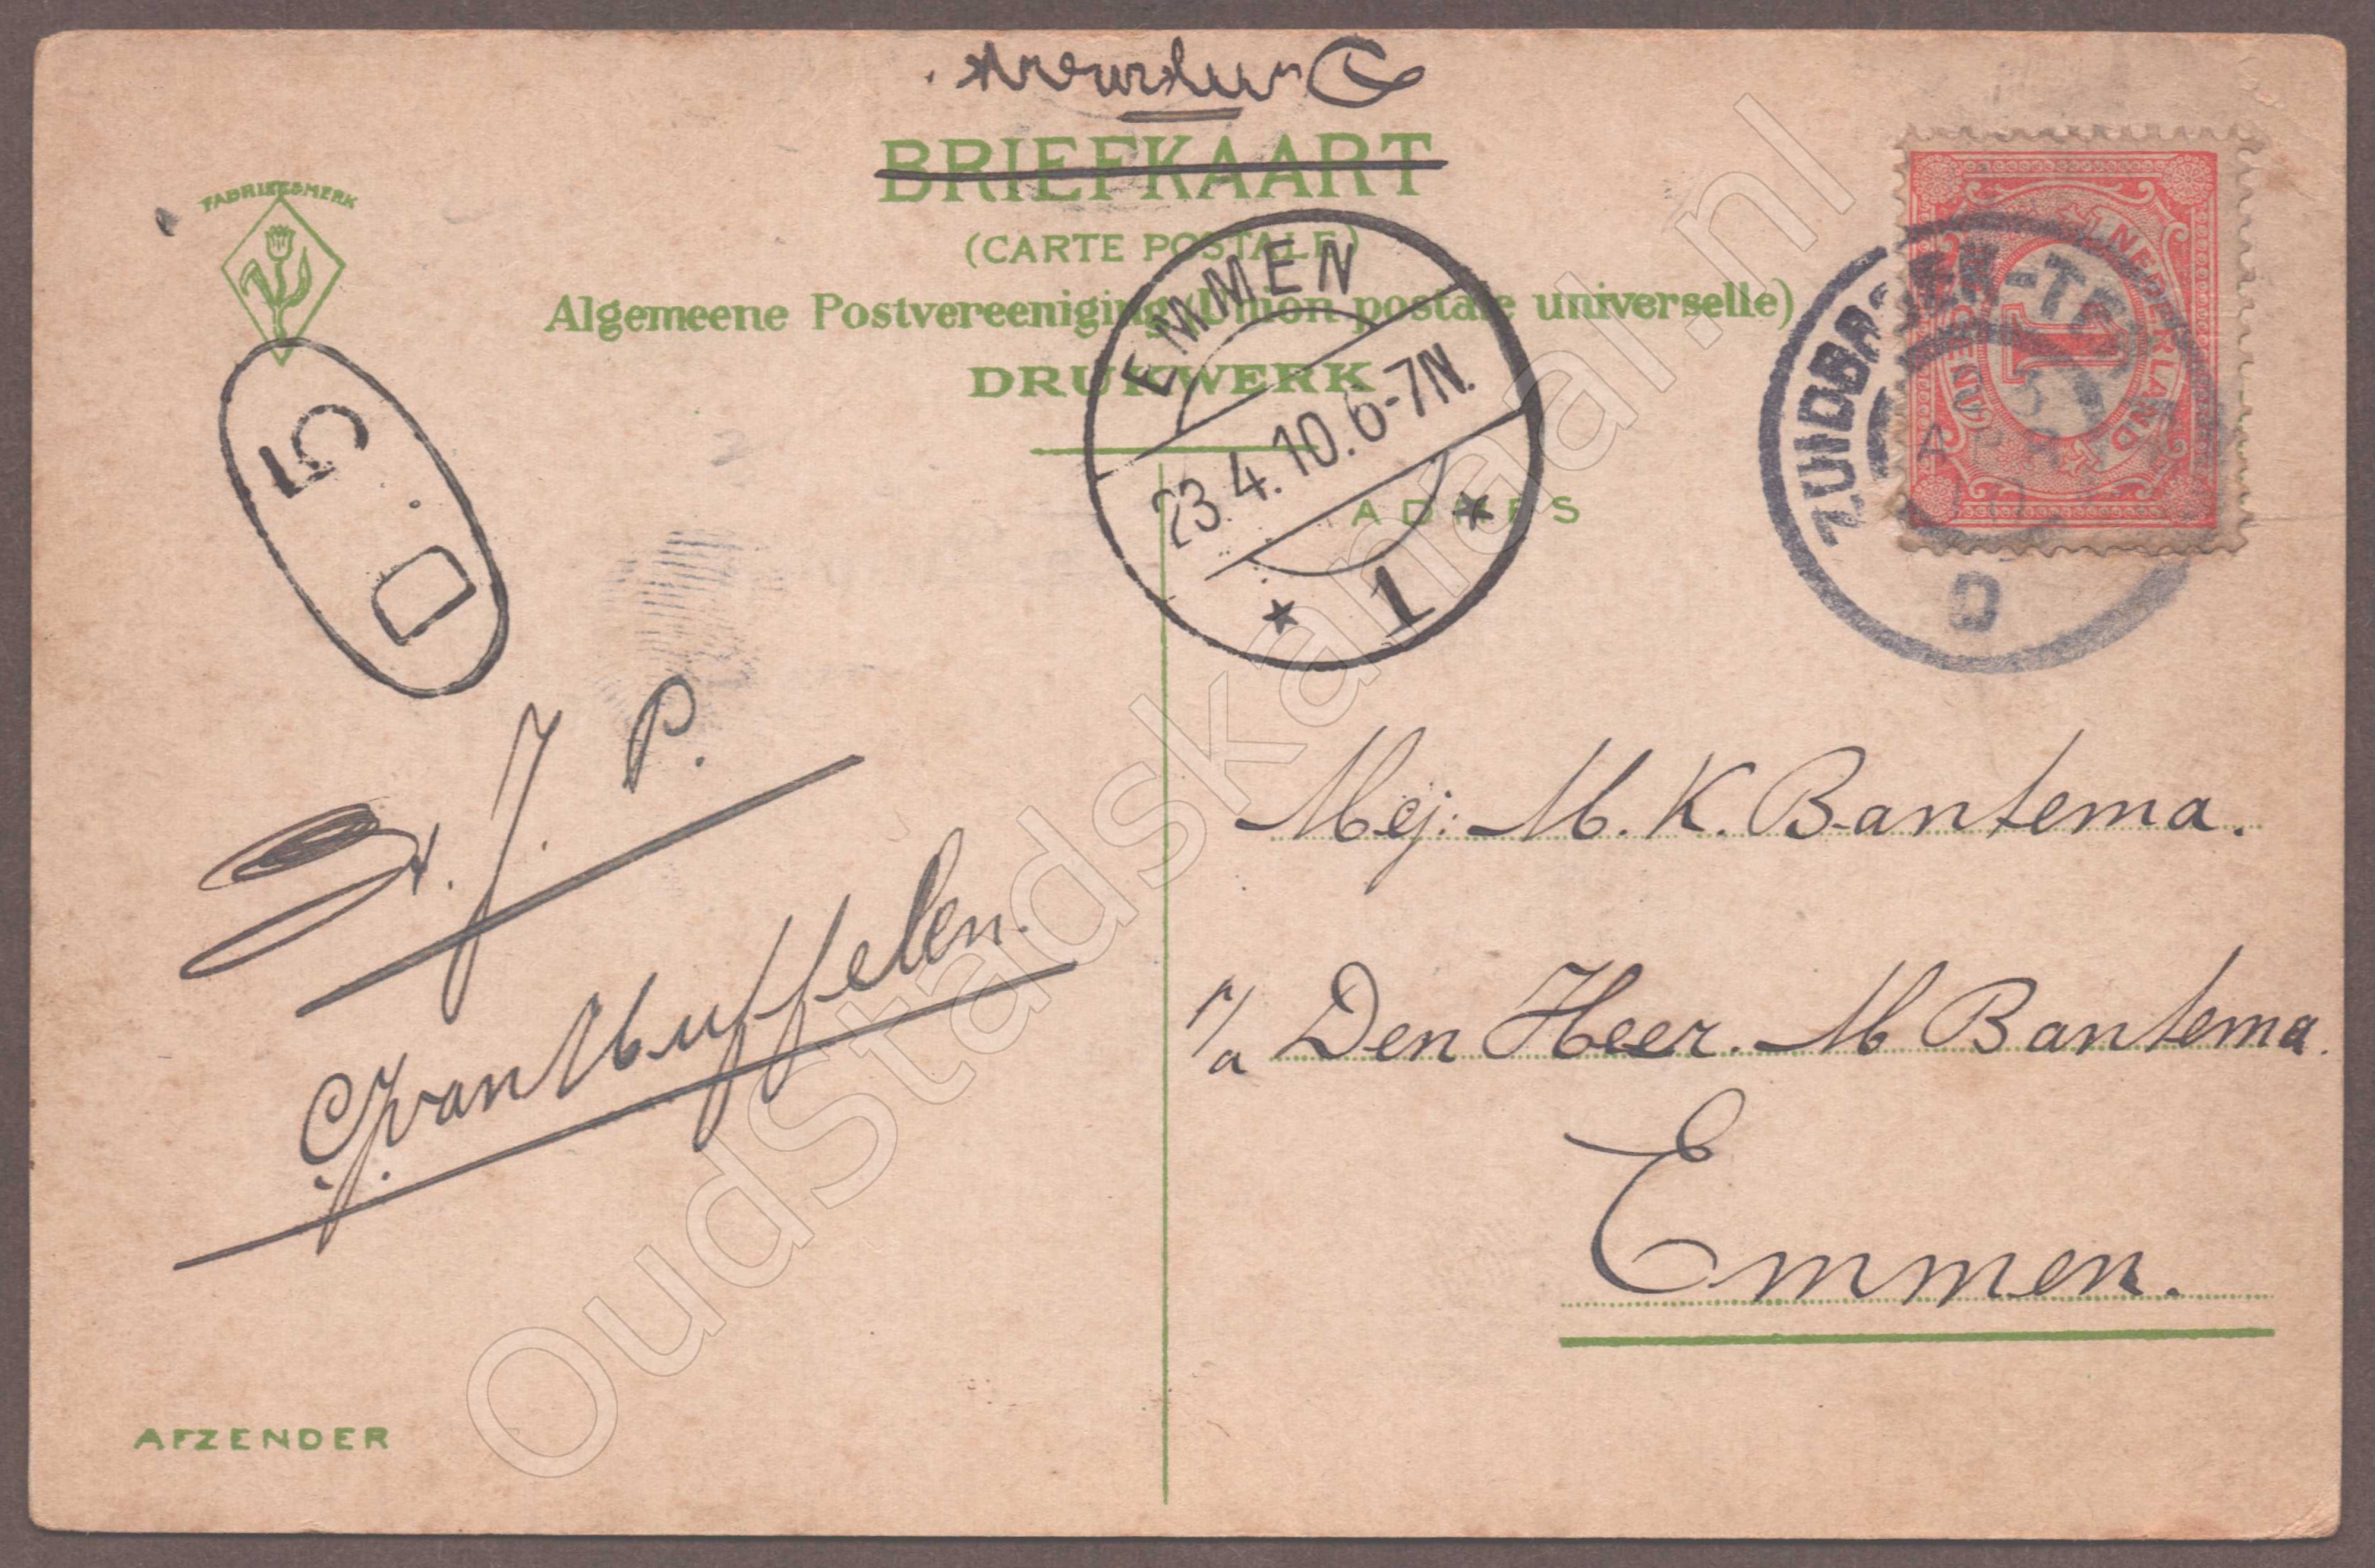 Drukwerk.
BRIEFKAART
(CARTE POSTALE)
Algemeene Postvereeniging (Union postale universelle)
DRUKWERK
FABRIEKSMERK
EMMEN
23.4.10.6-7N.
1
ZUIDBARGEN-TER
D
NEDERLAND
1
CENT
5 D
ADRES
J. P.
v. Muffelen.
Mej: M. K. Bantema.
p/a Den Heer. M Bantema.
Emmen.
AFZENDER
OudStadskanaal.nl